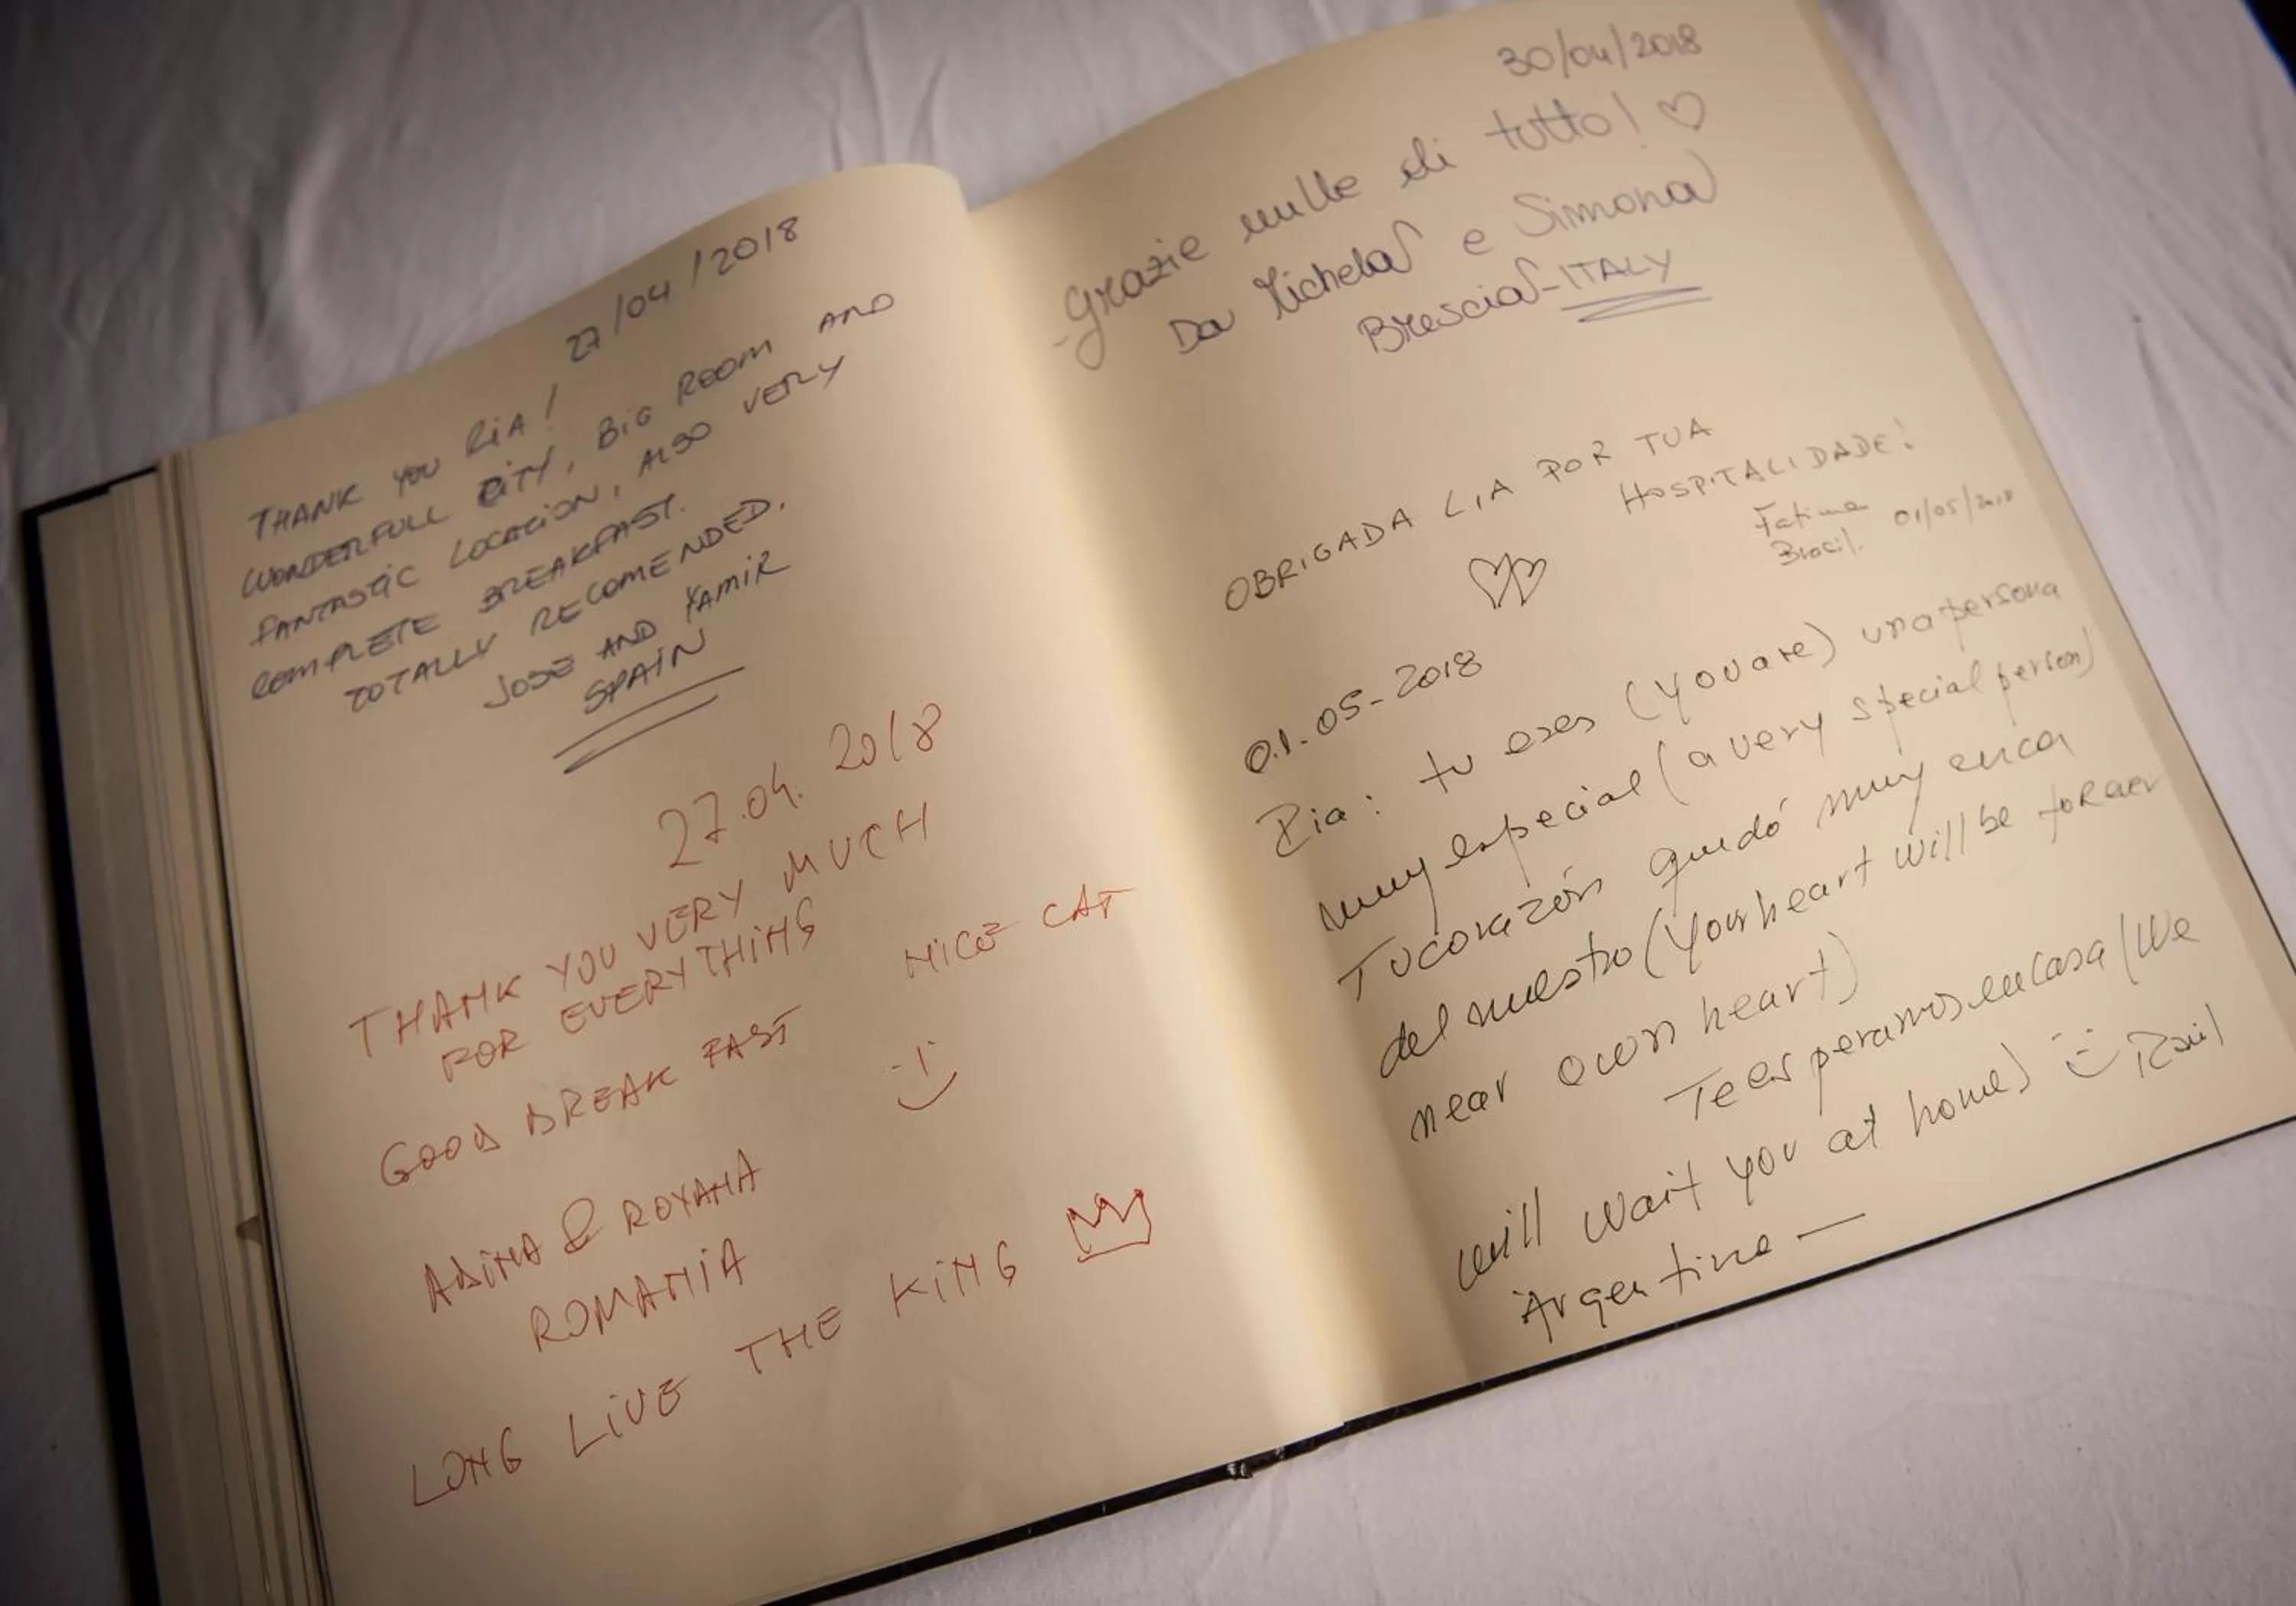 27/04/2018
THANK YOU RIA!
WONDERFULL CITY, BIG ROOM AND
FANTASTIC LOCACION, ALSO VERY
COMPLETE BREAKFAST.
TOTALLY RECOMENDED.
JOSE AND YAMIR
SPAIN
27.04.2018
THANK YOU VERY MUCH
FOR EVERYTHING
GOOD BREAK FAST NICE CAT
ADINA & ROXANA
ROMANIA
LONG LIVE THE KING
30/04/2018
-Grazie mille di tutto!
Da Michela e Simona
Brescia-ITALY
OBRIGADA LIA POR TUA
HOSPITALIDADE!
Fatima 01/05/2018
Brasil.
01-05-2018
Ria: tu eres (you are) una persona
muy especial (a very special person)
Tu corazón quedó muy cerca
del nuestro (your heart will be forever
near own heart)
Te esperamos en casa (We
will wait you at home) Raúl
Argentina